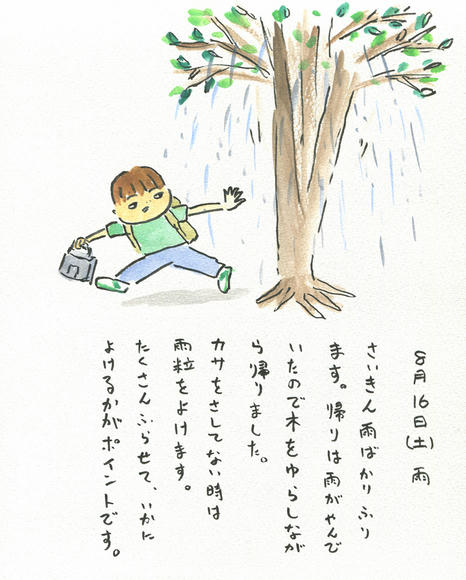 8月16日(土) 雨
さいきん雨ばかりふり
ます。帰りは雨がやんで
いたので木をゆらしなが
ら帰りました。
カサをさしてない時は
雨粒をよけます。
たくさんふらせて、いかに
よけるかがポイントです。